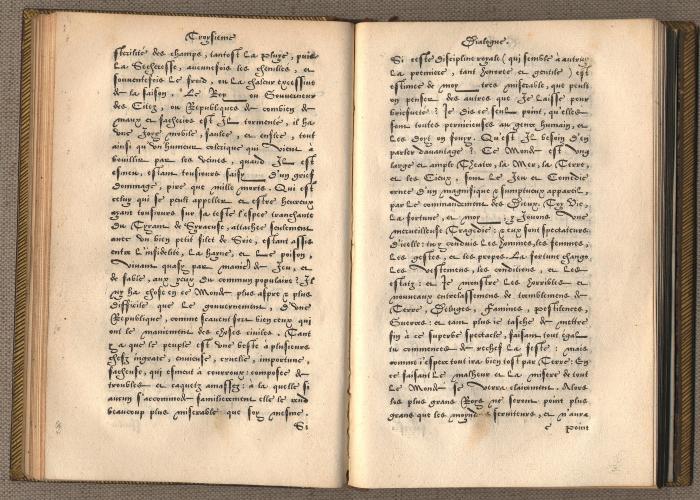 Troysieme
sterilité des champs, tantost La pluye, puis
La Secheresse, aucunesfois les chenilles, et
souuentefois Le froid, ou La chaleur excessiue
de la saison. Le Roy ou Gouuerneur
des Citez, ou Republiques de combien de
maux et facheries est Jl tormenté, il ha
vne Joye mobile, faulse, et enflee, tout
ainsi qu'vn humeur colerique qui vient à
bouillir par les veines, quand Jl est
esmeu, estant tousiours saisy d'vn grief
Dommage, pire que mille morts. Qui est
celuy qui se peult appeller et estre heureux
ayant tousiours sur sa teste l'espee trenchante
du Tyrant de Syracuse, attachee seulement
auec vn bien petit filet de Soie, estant assis
entre L'infidelité, La hayne, et Le poison,
viuant quasy par maniere de Jeu, et
de fable, aux yeux du commun populaire? Jl
ny ha chose en ce Monde plus aspre & plus
difficile que Le gouuernement, d'vne
Republique, comme scauent fort bien ceux qui
ont le maniement des choses ciuiles. Tant
y a que le peuple est vne beste à plusieurs
chefz ingrate, enuieuse, cruelle, importune,
facheuse, qui esmeut à courroux: composee de
troubles et caquetz amassez: à la quelle si
aucun s'accommode familierement elle le rend
beaucoup plus miserable que soy mesme.
Si
Dialogue.
Si ceste discipline royale (qui semble à autruy
La premiere, tant honeste et gentile) est
estimee de moy tres miserable, que peult
on penser des autres que Je laisse pour
briefueté? Je dis ce seul point, qu'elles
sont toutes pernicieuses au genre humain, et
Les doit on fouyr. Qu'est Jl besoin d'en
parler dauantage? Ce Monde est vng
large et ample Theatre, la Mer, la Terre,
et les Cieux, sont Le Jeu et Comedie
ornee d'vn magnifique & sumptueux appareil,
par le commandement des Dieux. Toy Vie,
La fortune, et moy, y Jouons vne
merueilleuse Tragedie: & eux sont spectateurs
d'icelle: tu y conduis Les hommes, les femmes,
Les gestes, et les propos. La fortune change
Les vestemens, les conditions, et Les
estatz: et Je monstre Les horribles et
nouueaux entrelassemens de tremblemens de
Terre, Deluges, Famines, pestilences,
Guerres: et tant plus ie tasche de mettre
fin à ce superbe spectacle, faisant tout egal
tu commences de rechef La feste: mais
comme i'espere tout ira bien tost par Terre: En
ce faisant Le malheur et La misere de tout
Le Monde se verra clairement. Alors
les plus grans Roys ne seront point plus
grans que les moyndres seruiteurs, et n'aura
point